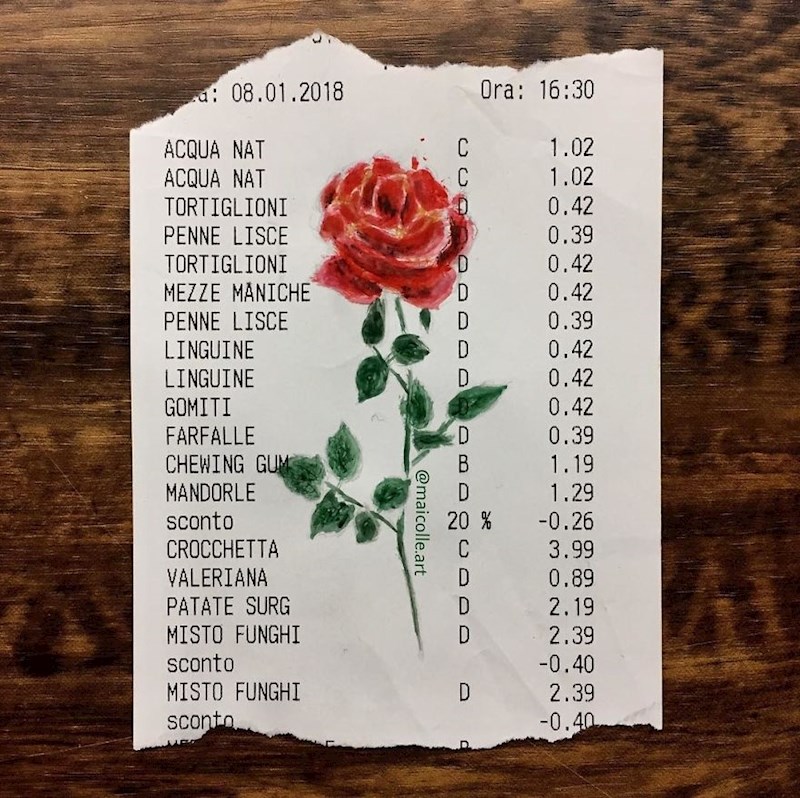 08.01.2018 Ora: 16:30
ACQUA NAT C 1.02
ACQUA NAT C 1.02
TORTIGLIONI D 0.42
PENNE LISCE D 0.39
TORTIGLIONI D 0.42
MEZZE MANICHE D 0.42
PENNE LISCE D 0.39
LINGUINE D 0.42
LINGUINE D 0.42
GOMITI D 0.42
FARFALLE D 0.39
CHEWING GUM B 1.19
MANDORLE D 1.29
sconto 20 % -0.26
CROCCHETTA C 3.99
VALERIANA D 0.89
PATATE SURG D 2.19
MISTO FUNGHI D 2.39
sconto -0.40
MISTO FUNGHI D 2.39
sconto -0.40
@maicolle.art